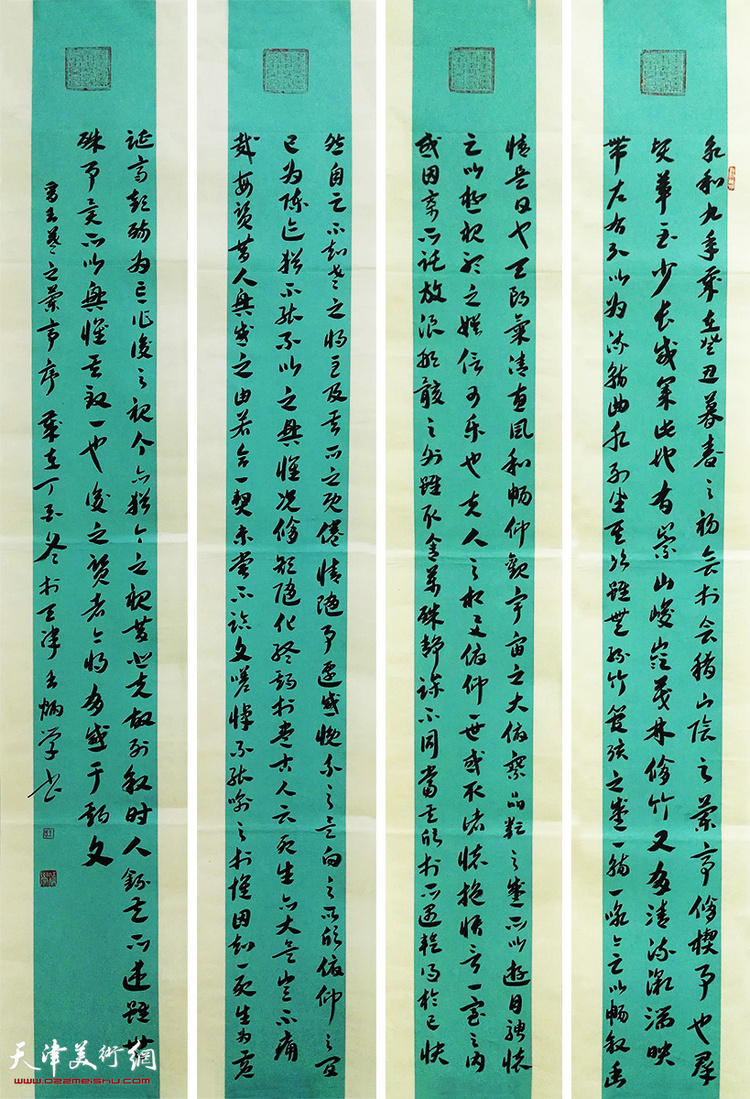 永和九年歲在癸丑暮春之初會於會稽山陰之蘭亭修禊事也群
賢畢至少長咸集此地有崇山峻嶺茂林修竹又有清流激湍映
帶左右引以為流觴曲水列坐其次雖無絲竹管弦之盛一觴一詠亦足以暢敘幽
情是日也天朗氣清惠風和暢仰觀宇宙之大俯察品類之盛所以遊目騁懷
足以極視聽之娛信可樂也夫人之相與俯仰一世或取諸懷抱悟言一室之內
或因寄所託放浪形骸之外雖取舍萬殊靜躁不同當其欣於所遇暫得於己快
然自足不知老之將至及其所之既倦情隨事遷感慨係之矣向之所欣俯仰之間
已為陳迹猶不能不以之興懷況修短隨化終期於盡古人云死生亦大矣豈不痛
哉每覽昔人興感之由若合一契未嘗不臨文嗟悼不能喻之於懷固知一死生為虛
誕齊彭殤為妄作後之視今亦猶今之視昔悲夫故列敘時人錄其所述雖世
殊事異所以興懷其致一也後之覽者亦將有感于斯文
書王羲之蘭亭序歲在丁酉冬於天津炳學書
天津美術網
www.022meishu.com